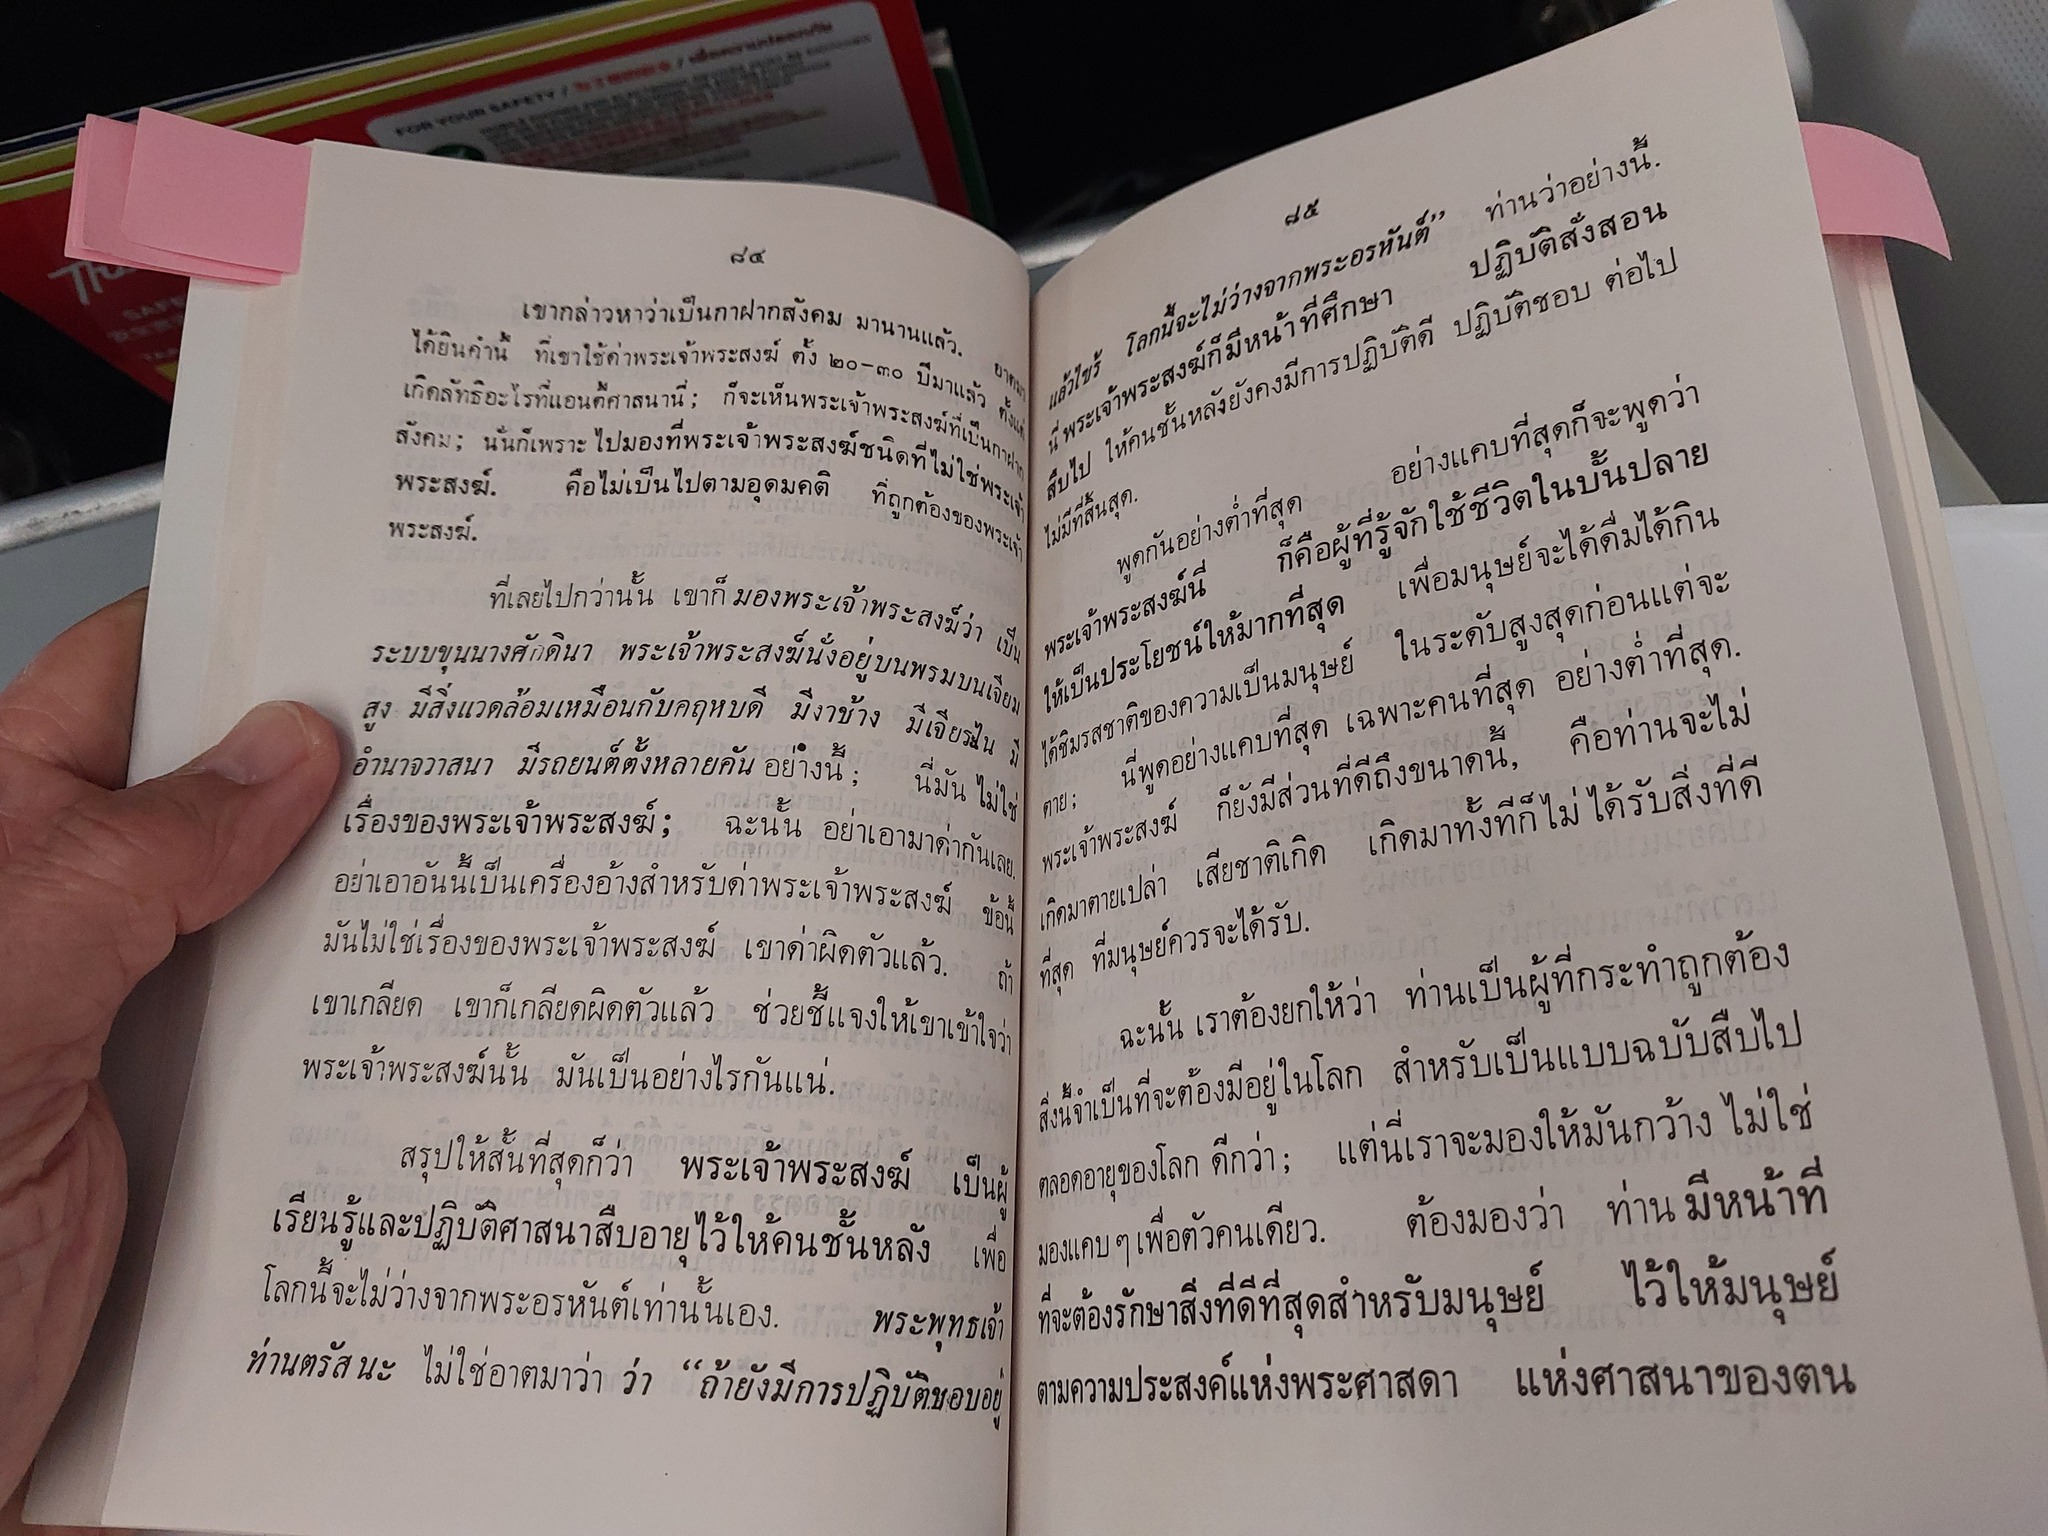 FOR YOUR SAFETY /
๘๔
เขากล่าวหาว่าเป็นกาฝากสังคม มานานแล้ว. อาตมา
ได้ยินคำนี้ ที่เขาใช้ด่าพระเจ้าพระสงฆ์ ตั้ง ๒๐-๓๐ ปีมาแล้ว ตั้งแต่
เกิดลัทธิอะไรที่แอนตี้ศาสนานี่; ก็จะเห็นพระเจ้าพระสงฆ์ที่เป็นกาฝาก
สังคม; นั่นก็เพราะ ไปมองที่พระเจ้าพระสงฆ์ชนิดที่ไม่ใช่พระเจ้า
พระสงฆ์. คือไม่เป็นไปตามอุดมคติ ที่ถูกต้องของพระเจ้า
พระสงฆ์.
ที่เลยไปกว่านั้น เขาก็ มองพระเจ้าพระสงฆ์ว่า เป็น
ระบบขุนนางศักดินา พระเจ้าพระสงฆ์นั่งอยู่บนพรมบนเจียม
สูง มีสิ่งแวดล้อมเหมือนกับคฤหบดี มีงาช้าง มีเจียระไน มี
อำนาจวาสนา มีรถยนต์ตั้งหลายคัน อย่างนี้; นี่มัน ไม่ใช่
เรื่องของพระเจ้าพระสงฆ์; ฉะนั้น อย่าเอามาด่ากันเลย.
อย่าเอาอันนี้เป็นเครื่องอ้างสำหรับด่าพระเจ้าพระสงฆ์ ข้อนี้
มันไม่ใช่เรื่องของพระเจ้าพระสงฆ์ เขาด่าผิดตัวแล้ว. ถ้า
เขาเกลียด เขาก็เกลียดผิดตัวแล้ว ช่วยชี้แจงให้เขาเข้าใจว่า
พระเจ้าพระสงฆ์นั้น มันเป็นอย่างไรกันแน่.
สรุปให้สั้นที่สุดก็ว่า พระเจ้าพระสงฆ์ เป็นผู้
เรียนรู้และปฏิบัติศาสนาสืบอายุไว้ให้คนชั้นหลัง เพื่อ
โลกนี้จะไม่ว่างจากพระอรหันต์เท่านั้นเอง. พระพุทธเจ้า
ท่านตรัสนะ ไม่ใช่อาตมาว่า ว่า “ถ้ายังมีการปฏิบัติชอบอยู่
๘๕
แล้วไซร้ โลกนี้จะไม่ว่างจากพระอรหันต์” ท่านว่าอย่างนี้.
นี่ พระเจ้าพระสงฆ์ก็มีหน้าที่ศึกษา ปฏิบัติสั่งสอน
สืบไป ให้คนชั้นหลังยังคงมีการปฏิบัติดี ปฏิบัติชอบ ต่อไป
ไม่มีที่สิ้นสุด.
พูดกันอย่างต่ำที่สุด อย่างแคบที่สุดก็จะพูดว่า
พระเจ้าพระสงฆ์นี่ ก็คือผู้ที่รู้จักใช้ชีวิตในบั้นปลาย
ให้เป็นประโยชน์ให้มากที่สุด เพื่อมนุษย์จะได้ดื่มได้กิน
ได้ชิมรสชาติของความเป็นมนุษย์ ในระดับสูงสุดก่อนแต่จะ
ตาย; นี่พูดอย่างแคบที่สุด เฉพาะคนที่สุด อย่างต่ำที่สุด.
พระเจ้าพระสงฆ์ ก็ยังมีส่วนที่ดีถึงขนาดนี้, คือท่านจะไม่
เกิดมาตายเปล่า เสียชาติเกิด เกิดมาทั้งทีก็ไม่ ได้รับสิ่งที่ดี
ที่สุด ที่มนุษย์ควรจะได้รับ.
ฉะนั้น เราต้องยกให้ว่า ท่านเป็นผู้ที่กระทำถูกต้อง
สิ่งนี้จำเป็นที่จะต้องมีอยู่ในโลก สำหรับเป็นแบบฉบับสืบไป
ตลอดอายุของโลก ดีกว่า; แต่นี่เราจะมองให้มันกว้าง ไม่ใช่
มองแคบ ๆ เพื่อตัวคนเดียว. ต้องมองว่า ท่าน มีหน้าที่
ที่จะต้องรักษาสิ่งที่ดีที่สุดสำหรับมนุษย์ ไว้ให้มนุษย์
ตามความประสงค์แห่งพระศาสดา แห่งศาสนาของตน